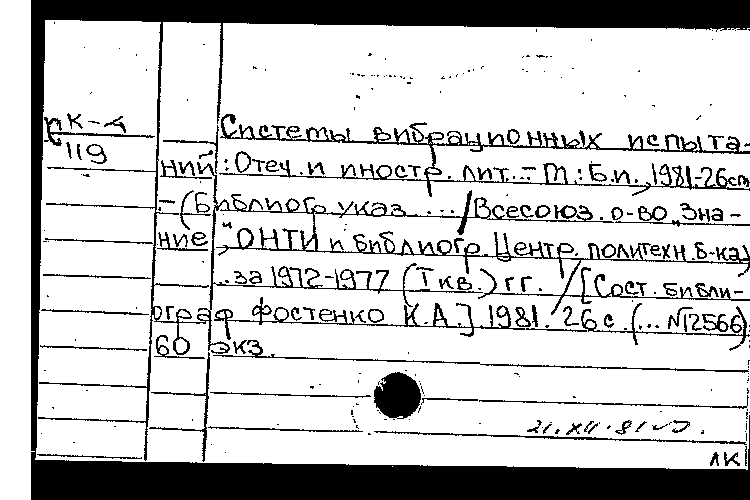 РК-4
119
Системы вибрационных испыта-
ний: Отеч. и иностр. лит. - М.: Б.и., 1981.-26 с
.-(Библиогр. указ. .../Всесоюз. о-во „Зна-
ние", ОНТИ и библиогр. Центр. политехн. б-ка)
..за 1972-1977 (I кв.) гг. / [Сост. библи-
ограф Фостенко К.А.]. 1981. 26 с. (... №12566)
60 экз.
21.XII.81
ЛК